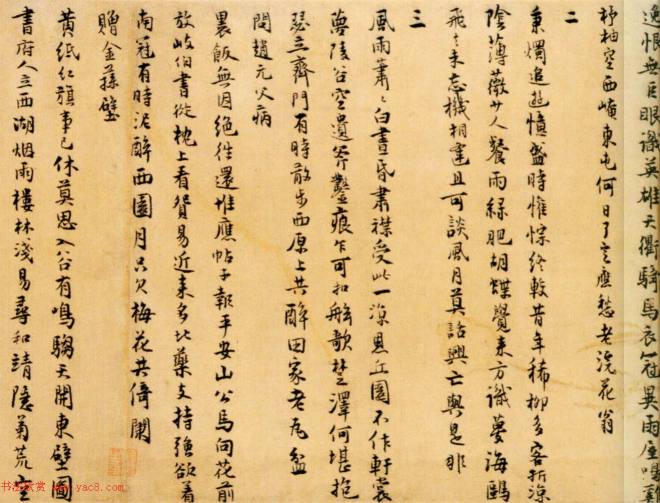 逸恨無巨眼識英雄天衢騎馬衣冠異雨
杼柚空西崦東屯何日了定應愁老浣花翁
二
秉燭追遊憶盛時惟悰終較昔年稀柳多客折涼
陰薄薇少人餐雨綠肥胡蝶覺來方識夢海鷗
飛去未忘機相逢且可談風月莫話興亡與是非
三
風雨蕭蕭白晝昏肅襟受此一涼恩丘園不作軒裳
夢陵谷空遺斧鑿痕乍可扣舷歌楚澤何堪抱
瑟立齊門有時散步西原上共醉田家老瓦盆
問趙元父病
裹飯無因絕往還惟應帖子報平安山公馬向花前
放岐伯書從枕上看贊易近來多比藥支持強欲着
南冠有時泥醉西園月只欠梅花共倚闌
贈金蓀壁
黃紙紅旗事已休莫思入谷有鳴騶天開東壁圖
書府人立西湖烟雨樓林淺易尋和靖隱菊荒
书法欣赏 www.yac8.com